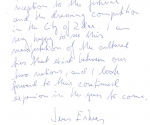 reception to the festival
and the drawing competition
in the City of Zlín. I am
very happy to see this
manifestation of the cultural
ties that exist between our
two nations, and I look
forward to this continued
expansion in the years to come.